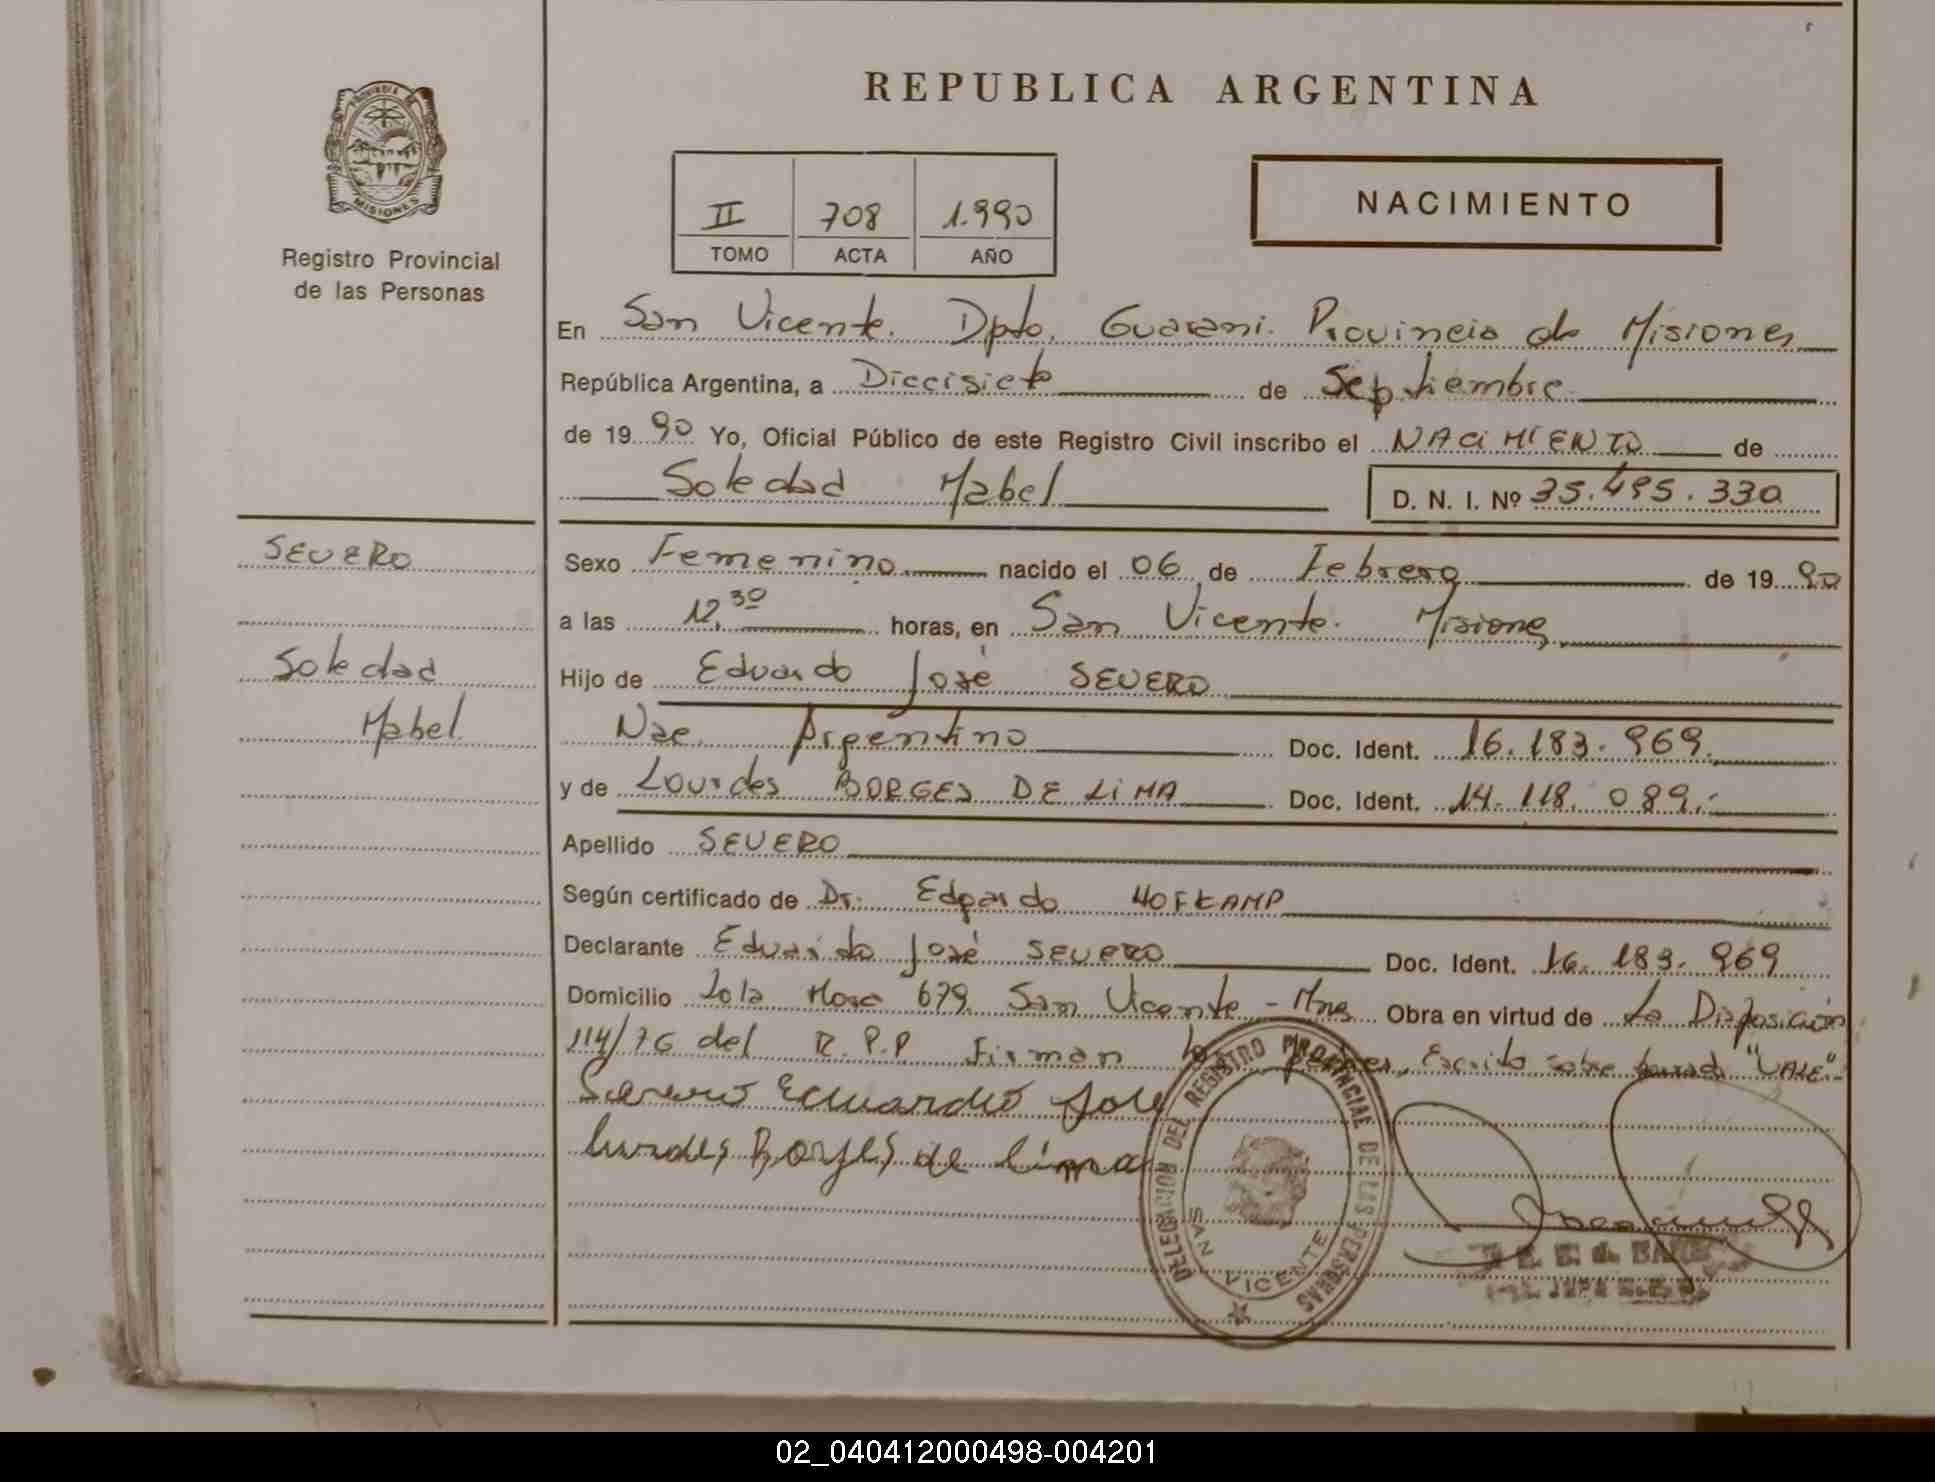 REPUBLICA ARGENTINA
PROVINCIA DE
MISIONES
Registro Provincial
de las Personas
II 708 1.990
TOMO ACTA AÑO
NACIMIENTO
En San Vicente. Dpto. Guarani. Provincia de Misiones
República Argentina, a Diecisiete de Septiembre
de 19 90 Yo, Oficial Público de este Registro Civil inscribo el NACIMIENTO de
Soledad Mabel D. N. I. Nº 35.495.330
SEVERO
Soledad
Mabel
Sexo Femenino nacido el 06 de Febrero de 19 90
a las 12,30 horas, en San Vicente. Misiones
Hijo de Eduardo José SEVERO
Nac. Argentino Doc. Ident. 16.183.969.
y de Lourdes BORGES DE LIMA Doc. Ident. 14.118.089.-
Apellido SEVERO
Según certificado de Dr. Edgardo HOFKAMP
Declarante Eduardo José SEVERO Doc. Ident. 16.183.969
Domicilio Lola Mora 679 San Vicente - Mnes Obra en virtud de La Disposición
114/76 del R.P.P Firman los padres, Escrito sobre borrado "VALE".-
Severo Eduardo Jose
Lurdes Borges de Lima
DELEGACION DEL REGISTRO PROVINCIAL DE LAS PERSONAS
SAN VICENTE
02_040412000498-004201